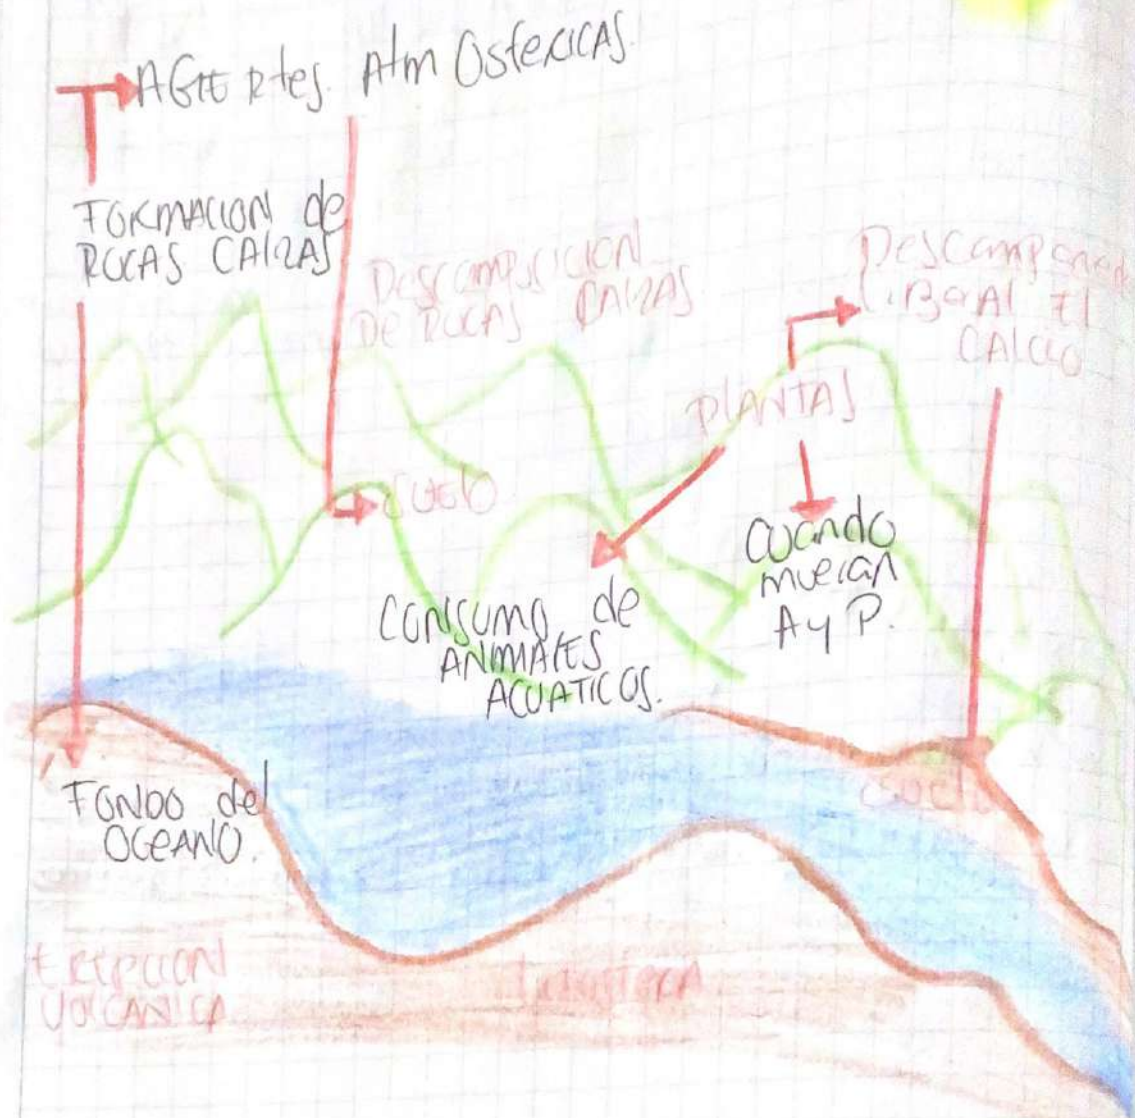 AGENtes. AtmOsfeRICAS.
FORMACION de
ROCAS CALIZAS
DesCompoSICION
De ROCAS CALIZAS
LIBERAN El
CALCIO
PLANTAS
SUELO
Cuando
mueran
A y P.
CONSUMO de
ANIMALES
ACUATICOS.
FONDO del
OCEANO.
SUELO
ERUPCION
VOLCANICA